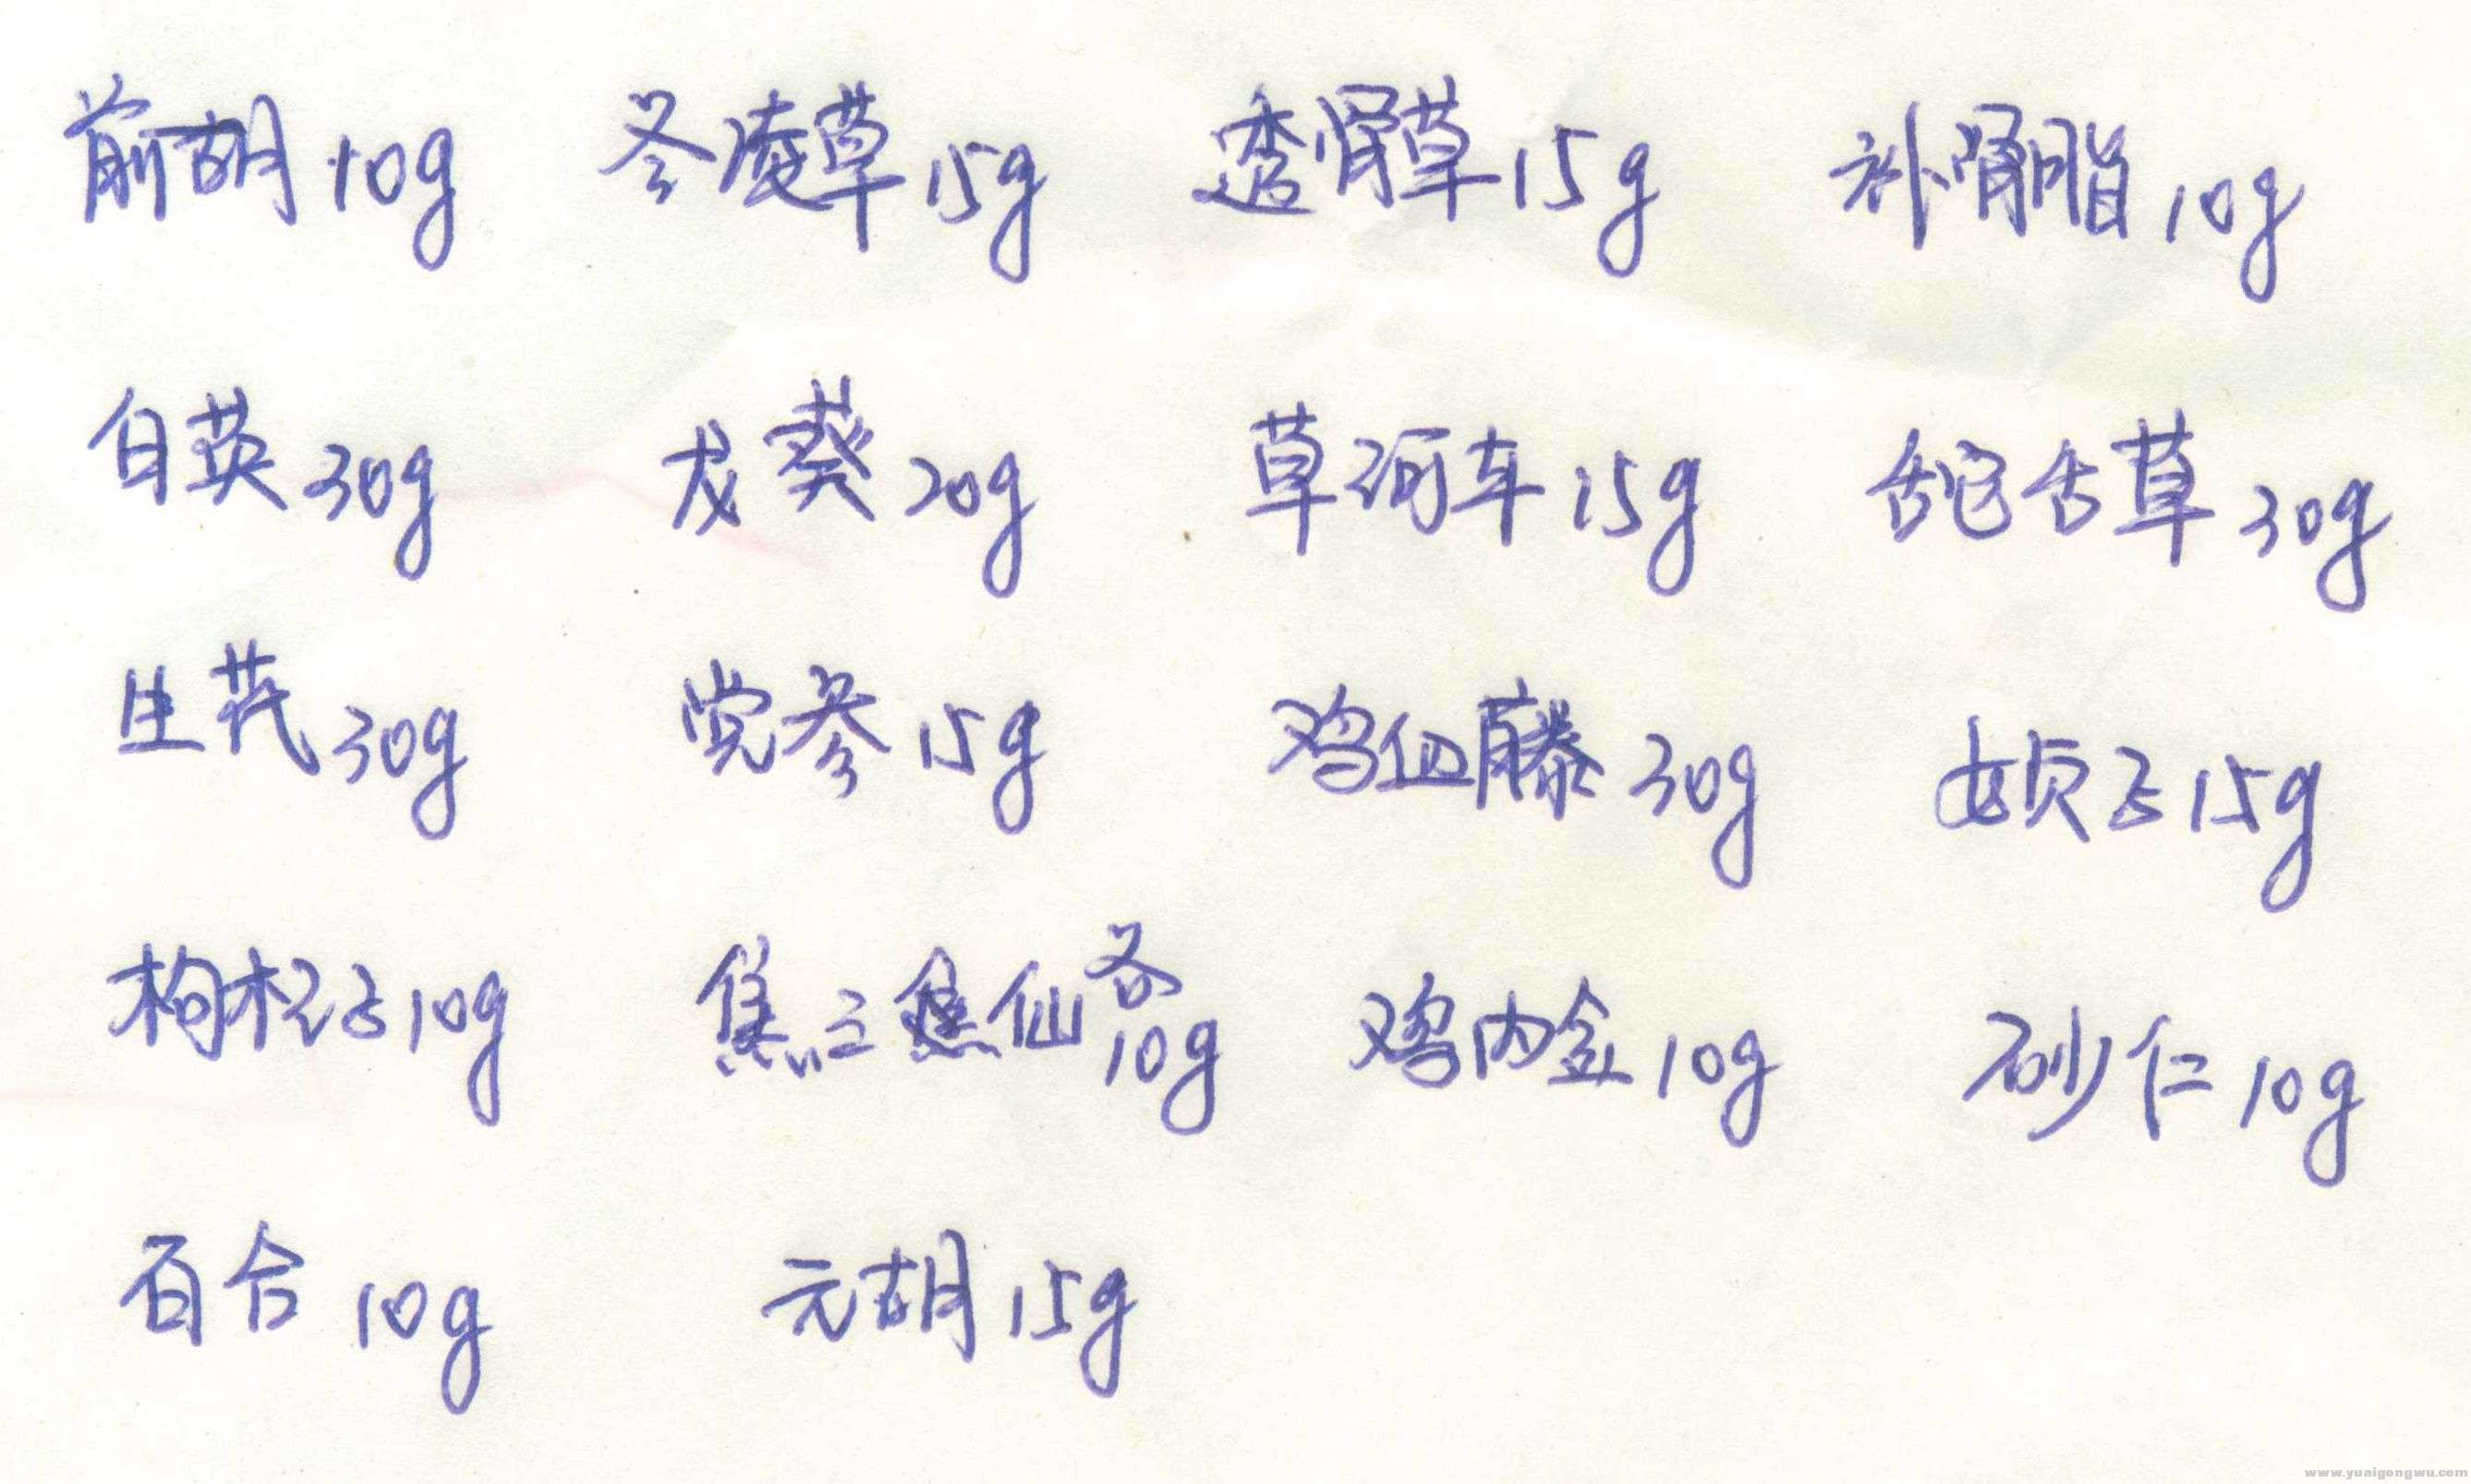 前胡 10g 冬凌草 15g 透骨草 15g 补骨脂 10g
白英 30g 龙葵 20g 草河车 15g 舌它舌草 30g
生芪 30g 党参 15g 鸡血藤 30g 女贞子 15g
枸杞子 10g 焦三仙 各 10g 鸡内金 10g 砂仁 10g
百合 10g 元胡 15g
www.yuaigongwu.com